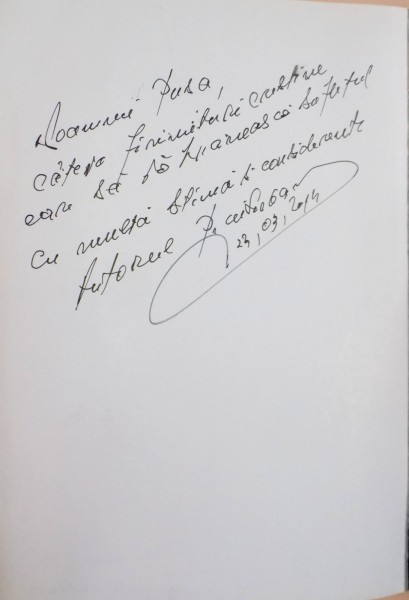 Doamnei Pusa,
câteva firimituri creștine
care să vă hrănească sufletul
cu multă stimă și considerente
Autorul
23,03,2014